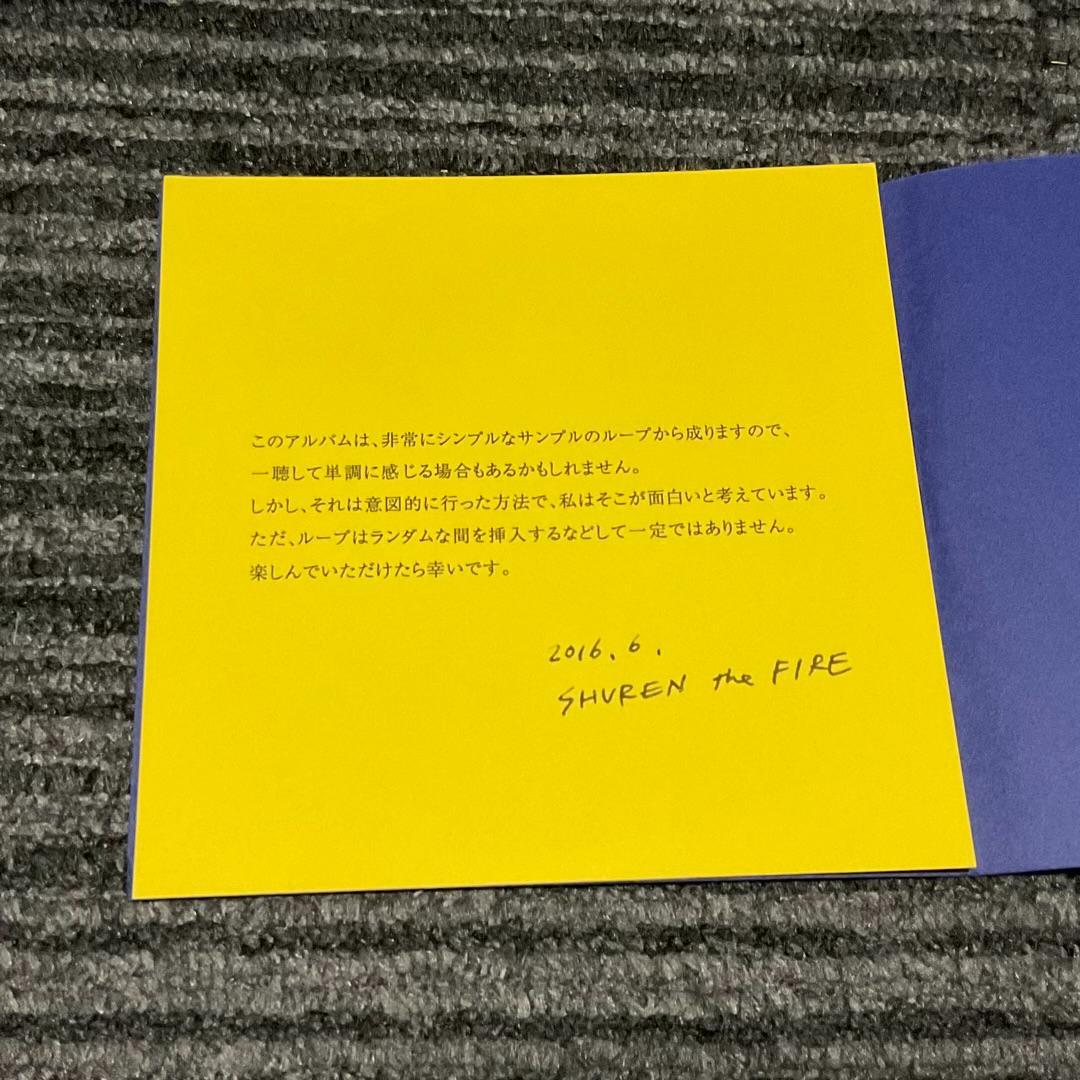 このアルバムは、非常にシンプルなサンプルのループから成りますので、
一聴して単調に感じる場合もあるかもしれません。
しかし、それは意図的に行った方法で、私はそこが面白いと考えています。
ただ、ループはランダムな間を挿入するなどして一定ではありません。
楽しんでいただけたら幸いです。
2016. 6.
SHUREN the FIRE